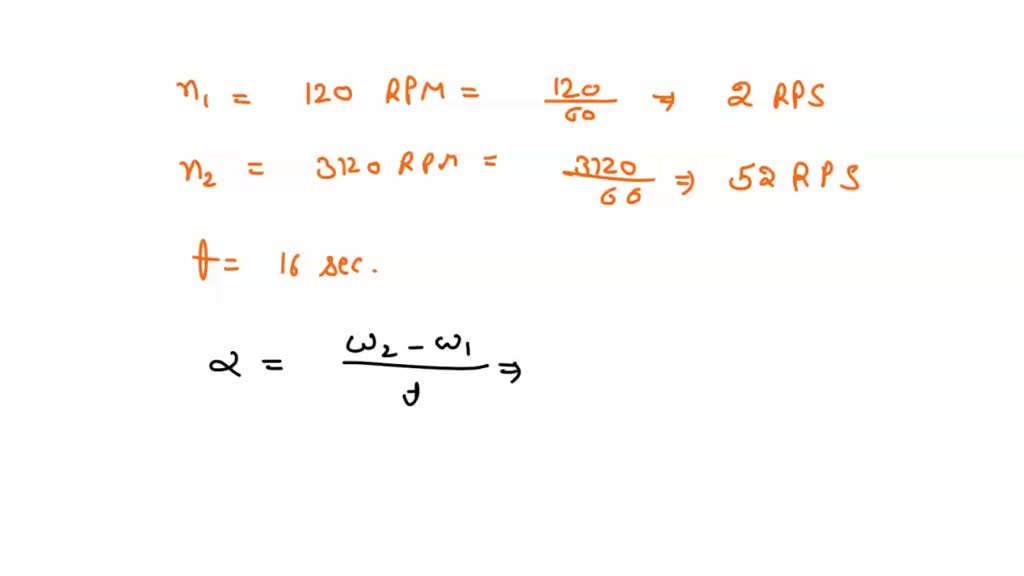 n₁ = 120 RPM = 120/60 ⇒ 2 RPS
n₂ = 3120 RPM = 3120/60 ⇒ 52 RPS
t = 16 sec.
α = ω₂ - ω₁/t ⇒